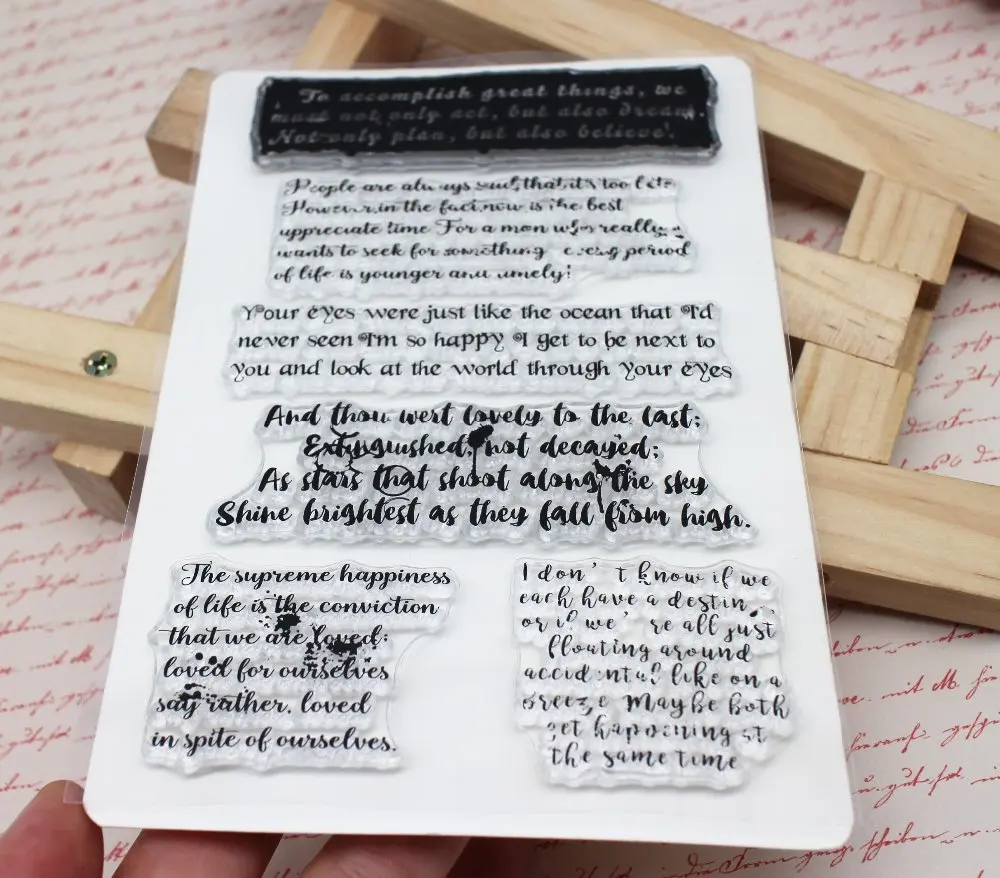 To accomplish great things, we
must not only act, but also dream.
Not only plan, but also believe!
People are always said, that it's too late
However, in the fact, now is the best
appreciate time For a man who really
wants to seek for something every period
of life is younger and timely!
Your eyes were just like the ocean that I'd
never seen I'm so happy I get to be next to
you and look at the world through your eyes
And thou wert lovely to the last;
Extinguished, not decayed;
As stars that shoot along the sky
Shine brightest as they fall from high.
The supreme happiness
of life is the conviction
that we are loved;
loved for ourselves
say rather, loved
in spite of ourselves.
I don't know if we
each have a destiny
or if we're all just
floating around
accidental like on a
breeze Maybe both
get happening at
the same time